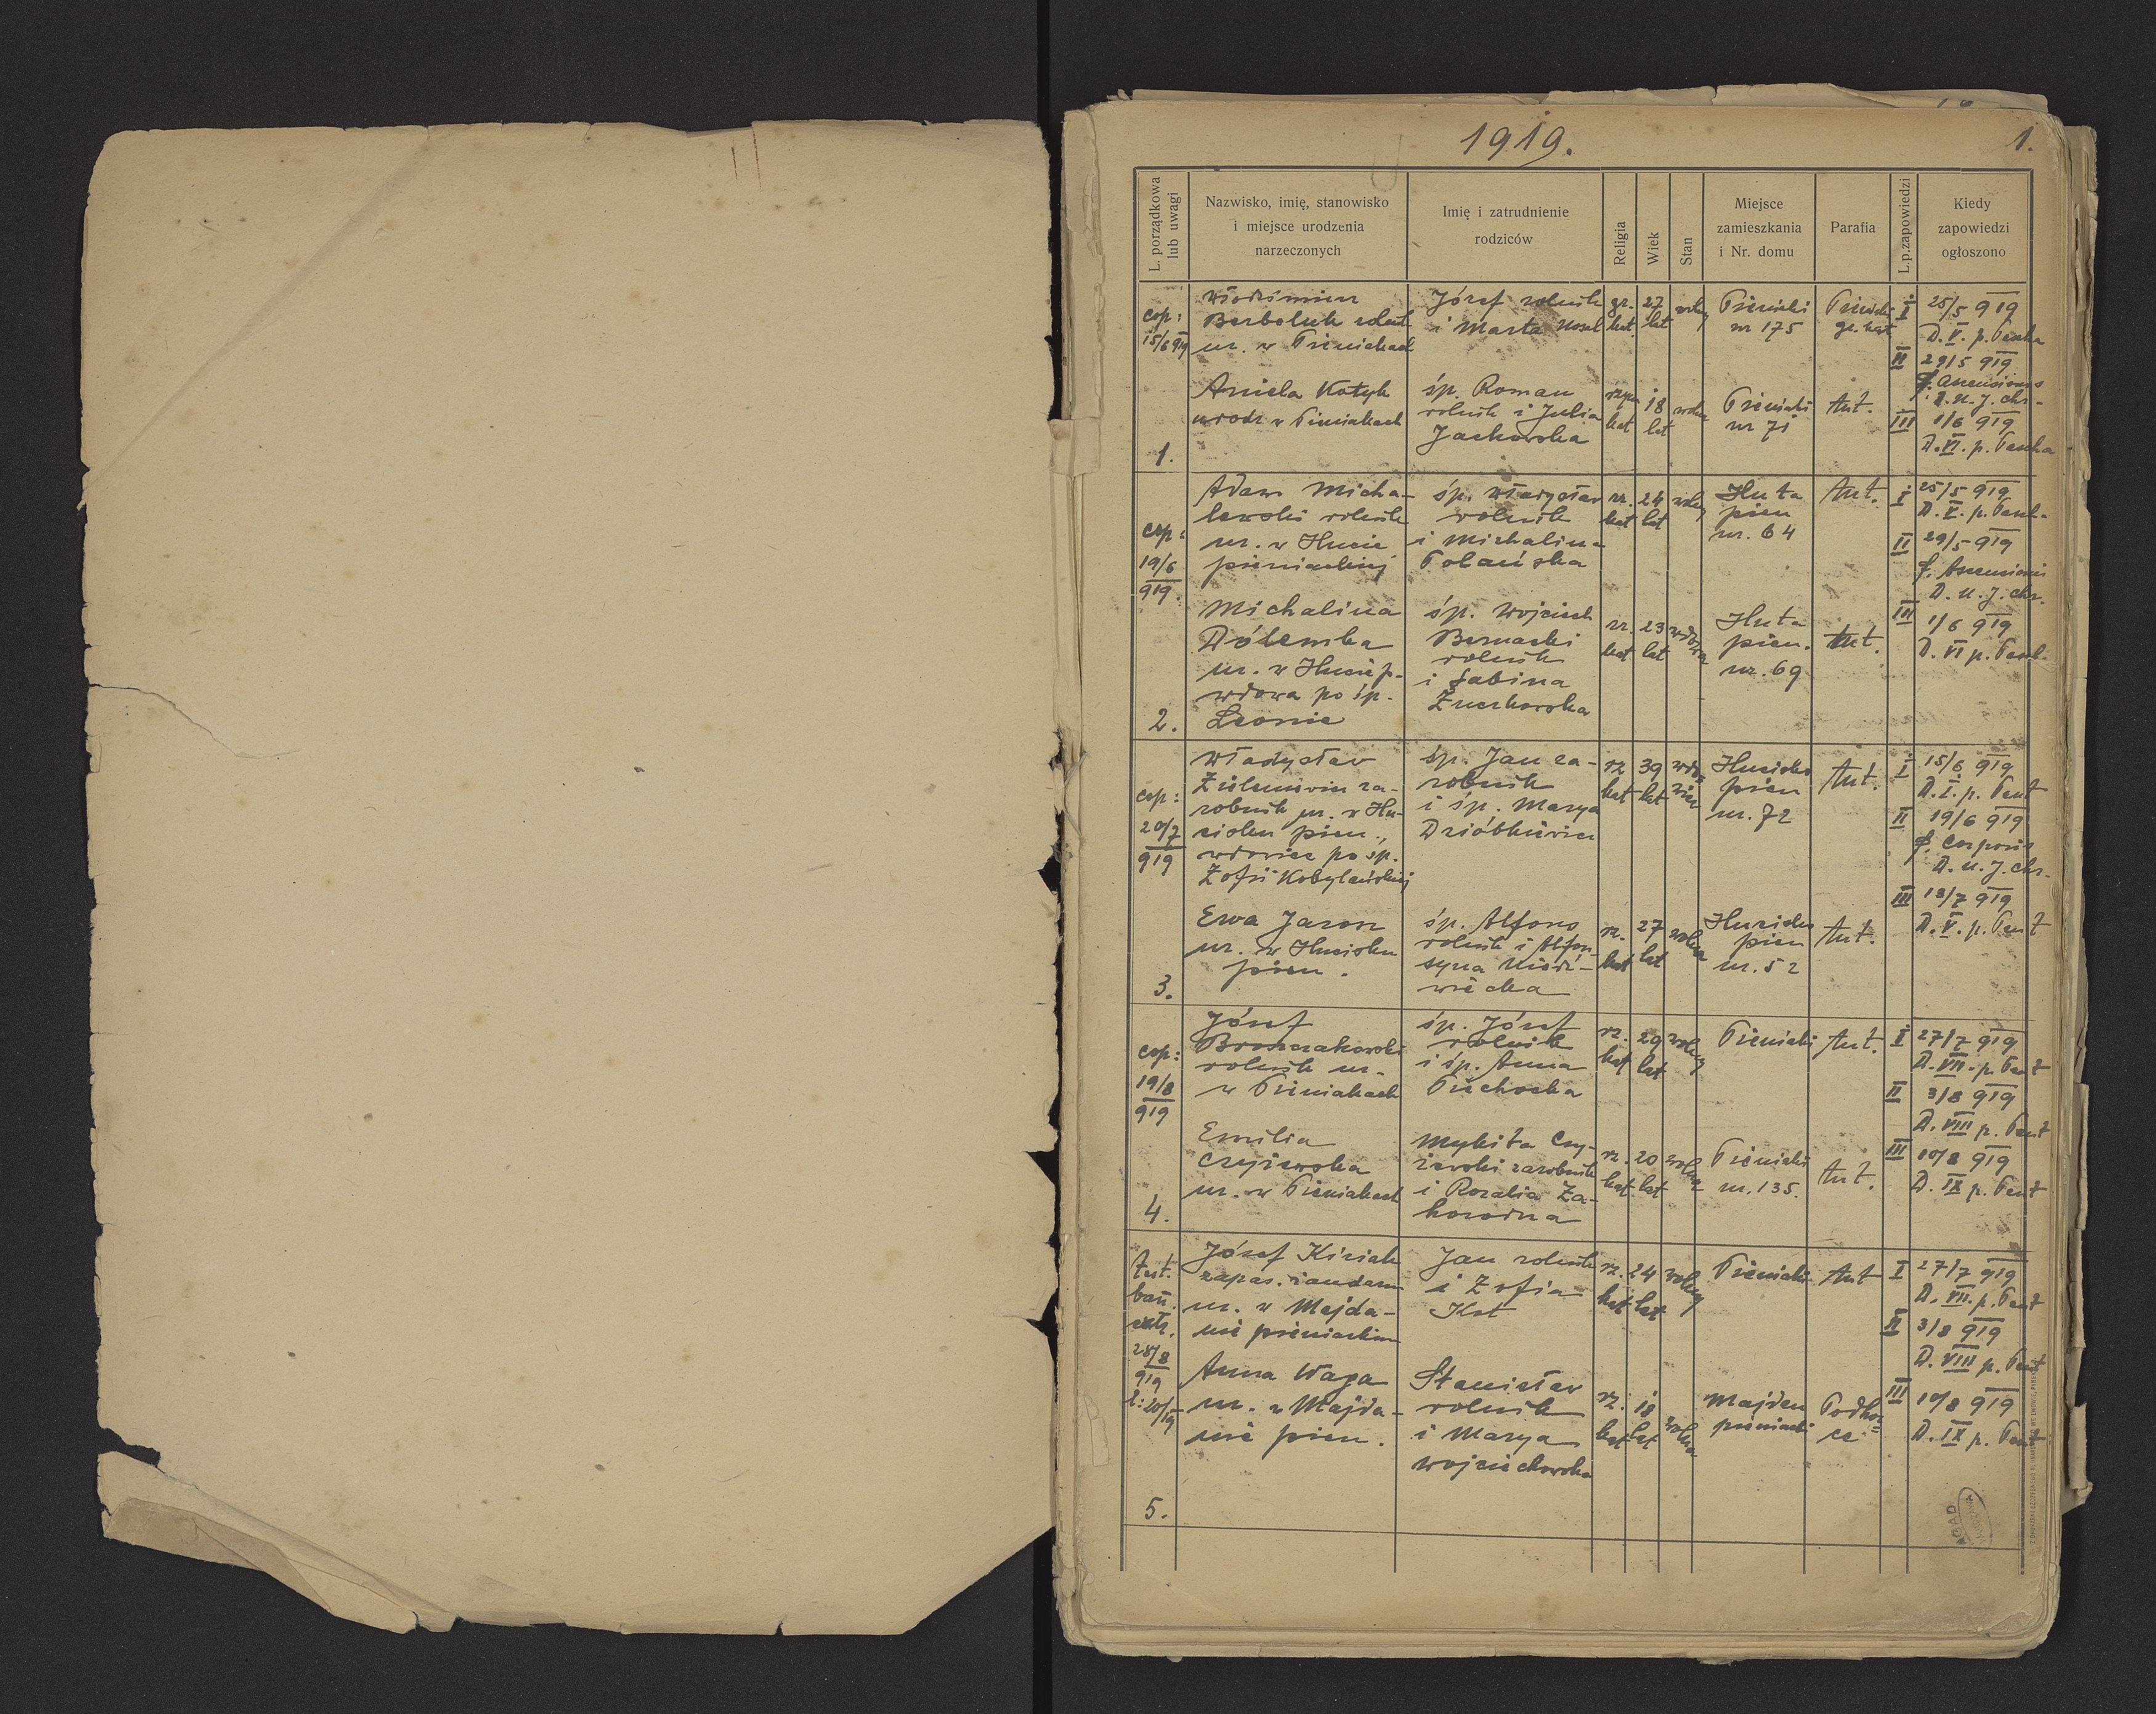 1919.
1.
L. porządkowa lub uwagi
Nazwisko, imię, stanowisko
i miejsce urodzenia
narzeczonych
Imię i zatrudnienie
rodziców
Religia
Wiek
Stan
Miejsce
zamieszkania
i Nr. domu
Parafia
L.p.zapowiedzi
Kiedy
zapowiedzi
ogłoszono
cop:
15/6 919
1.
Włodzimierz
ur. w Pieniakach
Józef rolnik
i Marta
gr. kat
27 lat
wolny
Pieniaki
nr 175
Pieniaki
gr. kat
I 25/5 919
D. V. p. Pascha
II 29/5 919
f. Ascensionis
D. N. J. Chr.
III 1/6 919
D. VI. p. Pascha
Aniela Kotyk
urodz w Pieniakach
śp. Roman
rolnik i Julia
Jachowska
rzym
kat
18
lat
wolna
Pieniaki
nr 71
Tut.
cop:
19/6
919.
2.
Adam Micha-
lewski rolnik
ur. w Hucie
pieniackiej
śp. Władysław
rolnik
i Michalina
Polańska
rz. kat
24 lat
wolny
Huta
pien
nr. 64
Tut.
I 25/5 919
D. V. p. Pasch.
II 29/5 919
f. Ascensionis
D. N. J. Chr.
III 1/6 919
D. VI p. Pasch.
Michalina
ur. w Hucie p.
wdowa po śp.
Leonie
śp. Wojciech
Bernacki
rolnik
i Sabina
Żuchowska
rz. kat
23 lat
wdowa
Huta
pien.
nr. 69
Tut.
cop:
20/7
919
3.
Władysław
za-
robnik ur. w Hu-
cisku pien.,
wdowiec po śp.
Zofii Kobylańskiej
śp. Jan za-
robnik
i śp. Marya
rz kat
39 lat
wdowiec
Hucisko
pien
nr. 72
Tut.
I 15/6 919
D. I. p. Pent
II 19/6 919
f. Corporis
D. N. J. Chr.
III 13/7 919
D. V. p. Pent
Ewa Jaron
ur. w Hucisku
pien.
śp. Alfons
rolnik i Alfon-
syna Niedź-
wiecka
rz. kat
27 lat
wolna
Hucisko
pien
nr. 52
Tut.
cop:
19/8
919
4.
Józef
rolnik ur.
w Pieniakach
śp. Józef
rolnik
i śp. Anna
Piechocka
rz. kat
29 lat
wolny
Pieniaki
Tut.
I 27/7 919
D. VII. p. Pent
II 3/8 919
D. VIII p. Pent
III 10/8 919
D. IX p. Pent
Emilia
Czyżewska
ur. w Pieniakach
Mykita Czy-
żewski zarobnik
i Rozalia Za-
horodna
rz. kat
20 lat
wolna
Pieniaki
nr. 135.
Tut.
Test.
ban.
extr.
28/8
919
l: 20/19
5.
Józef Kiziak
zapas. żandarm
ur. w Majda-
nie pieniackim
Jan rolnik
i Zofia
rz. kat
24 lat
wolny
Pieniaki
Tut
I 27/7 919
D. VII. p. Pent
II 3/8 919
D. VIII p. Pent
III 10/8 919
D. IX p. Pent
Anna Waga
ur. w Majda-
nie pien.
Stanisław
rolnik
i Marya
Wojciechowska
rz. kat
18 lat
wolna
Majdan
pieniacki
Podhor=
ce
AGAD